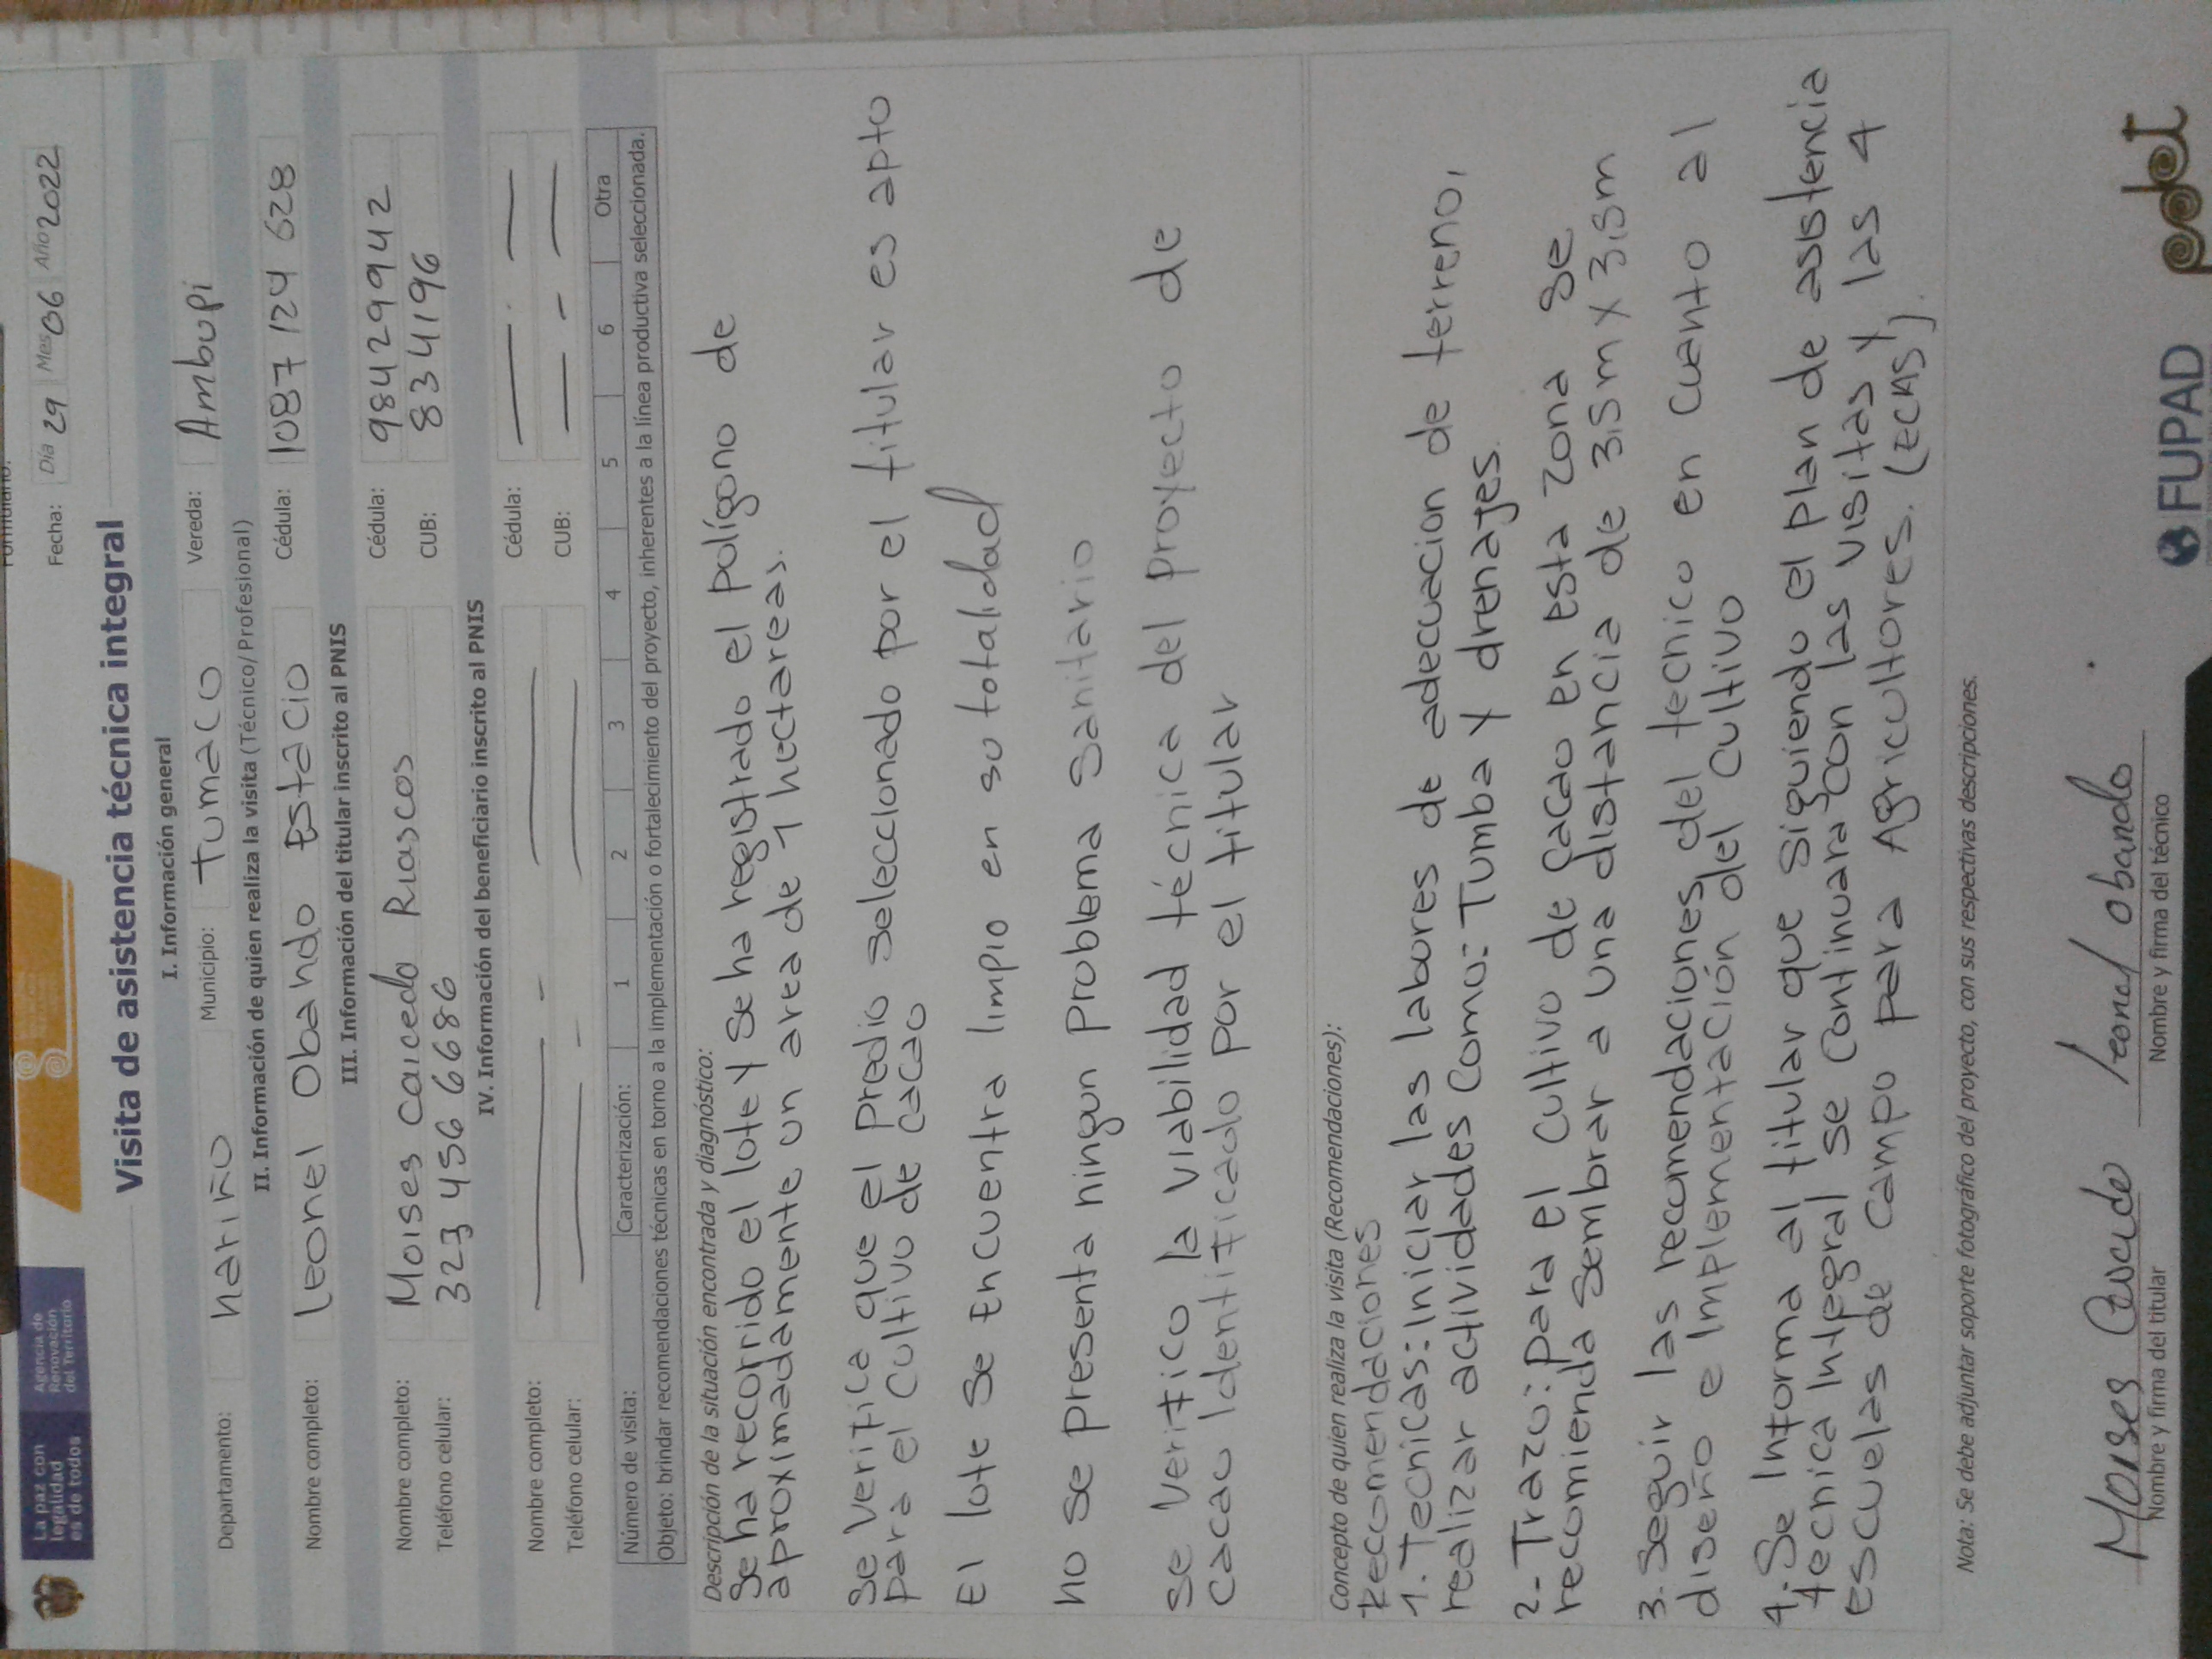 La paz con
legalidad
es de todos
Agencia de
Renovación
del Territorio
Fecha: Día 29 Mes 06 Año 2022
Visita de asistencia técnica integral
I. Información general
Departamento: nariño Municipio: tumaco Vereda: Ambupi
II. Información de quien realiza la visita (Técnico/Profesional)
Nombre completo: leonel Obando Estacio Cédula: 1087 124 628
III. Información del titular inscrito al PNIS
Nombre completo: Moises Caicedo Riascos Cédula: 984299942
Teléfono celular: 323 456 6686 CUB: 834196
IV. Información del beneficiario inscrito al PNIS
Nombre completo: Cédula:
Teléfono celular: CUB:
Número de visita: Caracterización: 1 2 3 4 5 6 Otra
Objeto: brindar recomendaciones técnicas en torno a la implementación o fortalecimiento del proyecto, inherentes a la línea productiva seleccionada.
Descripción de la situación encontrada y diagnóstico:
Se ha recorrido el lote y se ha registrado el polígono de
aproximadamente un area de 1 hectareas.
Se verifica que el predio seleccionado por el titular es apto
para el cultivo de cacao
El lote se encuentra limpio en su totalidad
no se presenta ningun problema sanitario
se verifico la viabilidad técnica del proyecto de
cacao identificado por el titular
Concepto de quien realiza la visita (Recomendaciones):
Recomendaciones
1. Tecnicas: Iniciar las labores de adecuacion de terreno,
realizar actividades como: Tumba y drenajes.
2- Trazo: para el cultivo de cacao en esta zona se
recomienda sembrar a una distancia de 3.5m x 3.5m
3. Seguir las recomendaciones del tecnico en cuanto al
diseño e implementación del cultivo
4. Se informa al titular que siguiendo el plan de asistencia
tecnica integral se continuara con las visitas y las 4
escuelas de campo para Agricultores. (ECAS)
Nota: Se debe adjuntar soporte fotográfico del proyecto, con sus respectivas descripciones.
Moises Caicedo leonel obando
Nombre y firma del titular Nombre y firma del técnico
FUPAD pdet